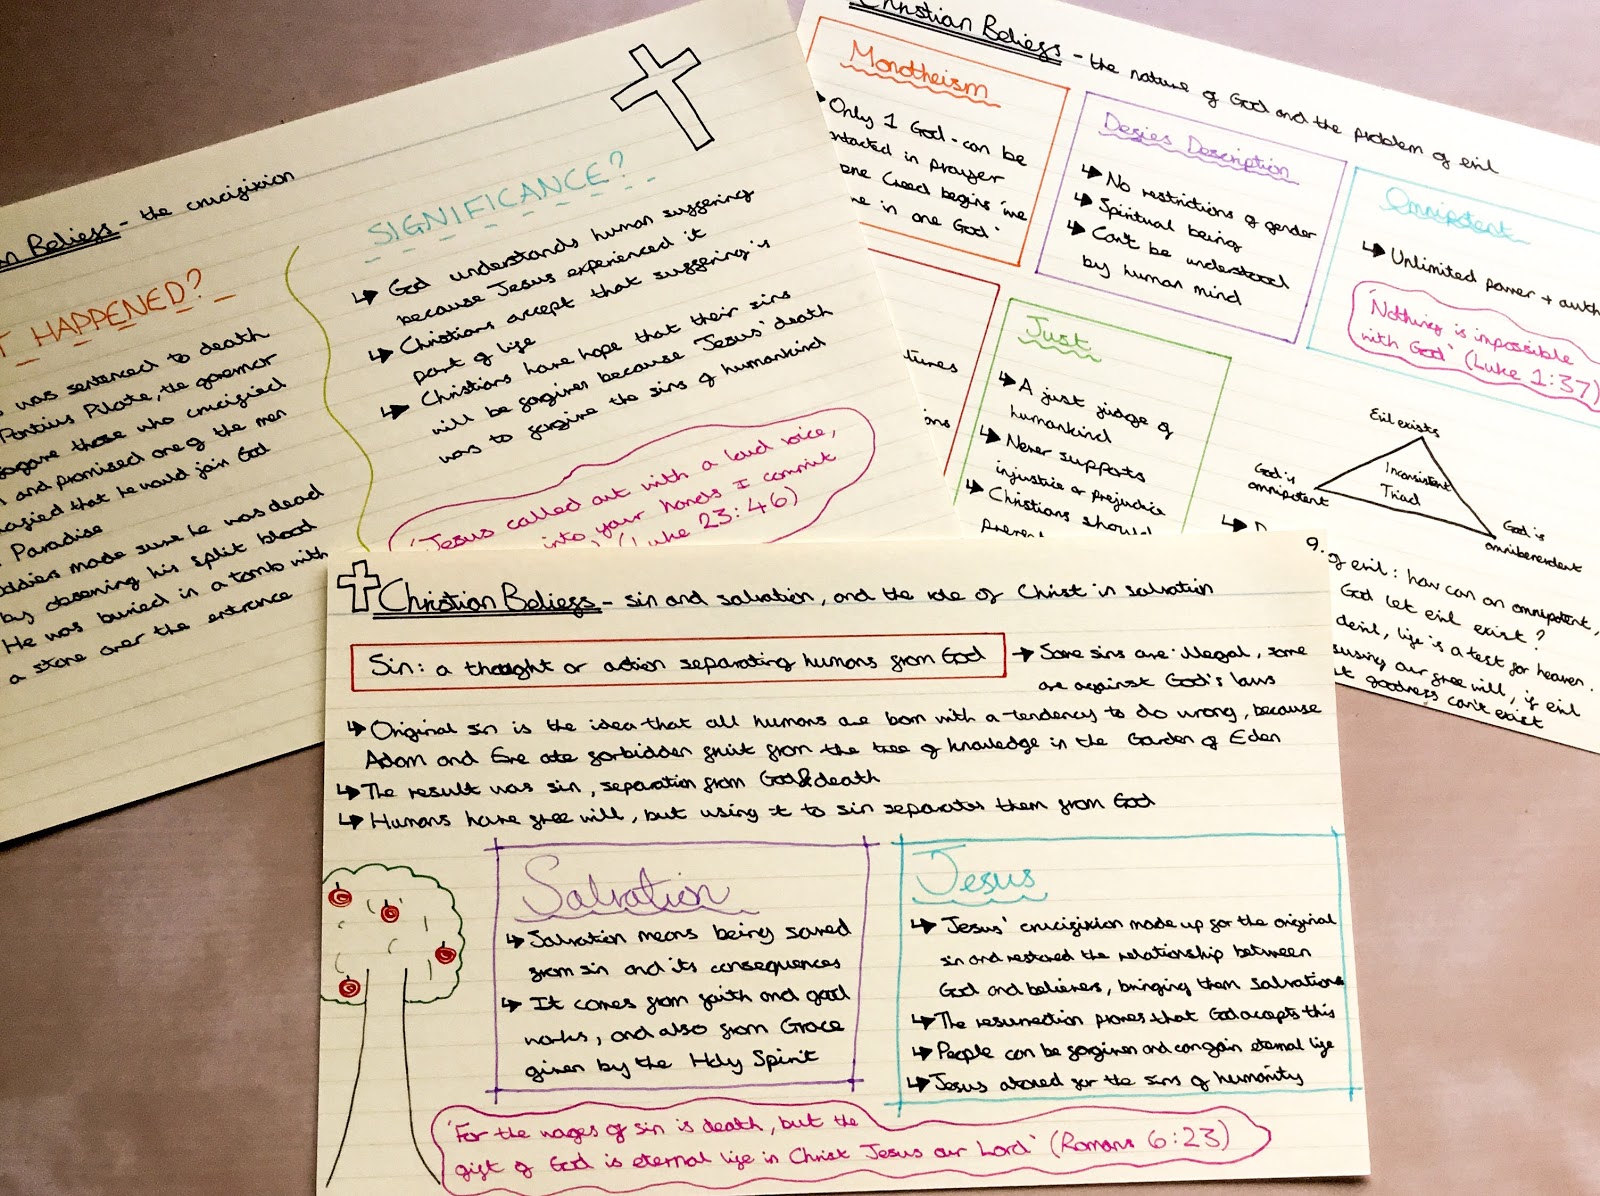 Beliefs - the crucifixion
HAPPENED?
was sentenced to death
Pontius Pilate, the governor
forgave those who crucified
and promised one of the men
crucified that he would join God
Paradise
soldiers made sure he was dead
by observing his spilt blood
He was buried in a tomb with
a stone over the entrance
SIGNIFICANCE?
God understands human suffering
because Jesus experienced it
Christians accept that suffering is
part of life
Christians have hope that their sins
will be forgiven because Jesus' death
was to forgive the sins of humankind
'Jesus called out with a loud voice,
into your hands I commit
(Luke 23:46)
Christian Beliefs - the nature of God and the problem of evil
Monotheism
Only 1 God - can be
contacted in prayer
Creed begins 'we
in one God'
Defies Description
No restrictions of gender
Spiritual being
Can't be understood
by human mind
Omnipotent
Unlimited power +
'Nothing is impossible
with God' (Luke 1:37)
Just
A just judge of
humankind
Never supports
injustice or prejudice
Christians should
Evil exists
God is
omnipotent
Inconsistent
Triad
God is
omnibenevolent
of evil: how can an omnipotent,
God let evil exist?
devil, life is a test for heaven.
our free will, if evil
goodness can't exist
Christian Beliefs - sin and salvation, and the role of Christ in salvation
Sin: a thought or action separating humans from God
Some sins are illegal, some
are against God's laws
Original sin is the idea that all humans are born with a tendency to do wrong, because
Adam and Eve ate forbidden fruit from the tree of knowledge in the Garden of Eden
The result was sin, separation from God & death
Humans have free will, but using it to sin separates them from God
Salvation
Salvation means being saved
from sin and its consequences
It comes from faith and good
works, and also from Grace
given by the Holy Spirit
Jesus
Jesus' crucifixion made up for the original
sin and restored the relationship between
God and believers, bringing them salvations
The resurrection proves that God accepts this
People can be forgiven and can gain eternal life
Jesus atoned for the sins of humanity
'For the wages of sin is death, but the
gift of God is eternal life in Christ Jesus our Lord' (Romans 6:23)